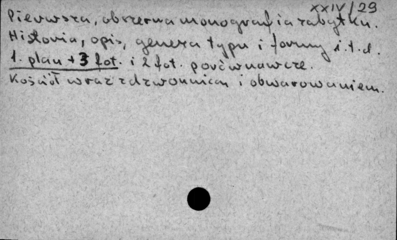 XXIV/29
Pierwsza, obszerna monografia zabytku.
Historia, opis, geneza typu i formy i.t.d.
1. plan + 3 fot. i 2 fot. porównawcze.
Kościół wraz z dzwonnicą i obwarowaniem.